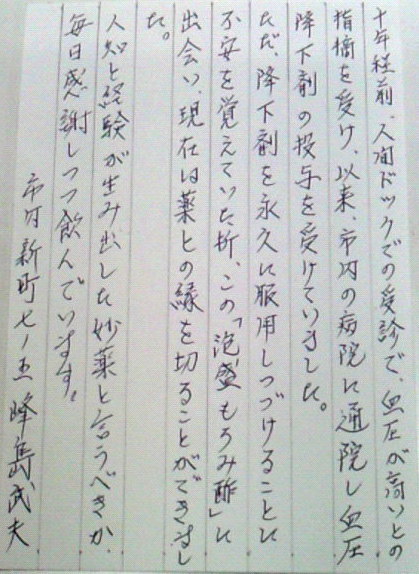 十年程前、人間ドックでの受診で、血圧が高いとの
指摘を受け、以来、市内の病院に通院し血圧
降下剤の投与を受けていました。
ただ、降下剤を永久に服用しつづけることに
不安を覚えていた折、この「泡盛もろみ酢」に
出会い、現在は薬との縁を切ることができまし
た。
人知と経験が生み出した妙薬と言うべきか、
毎日感謝しつつ飲んでいます。
市内新町七ノ五 峰島武夫